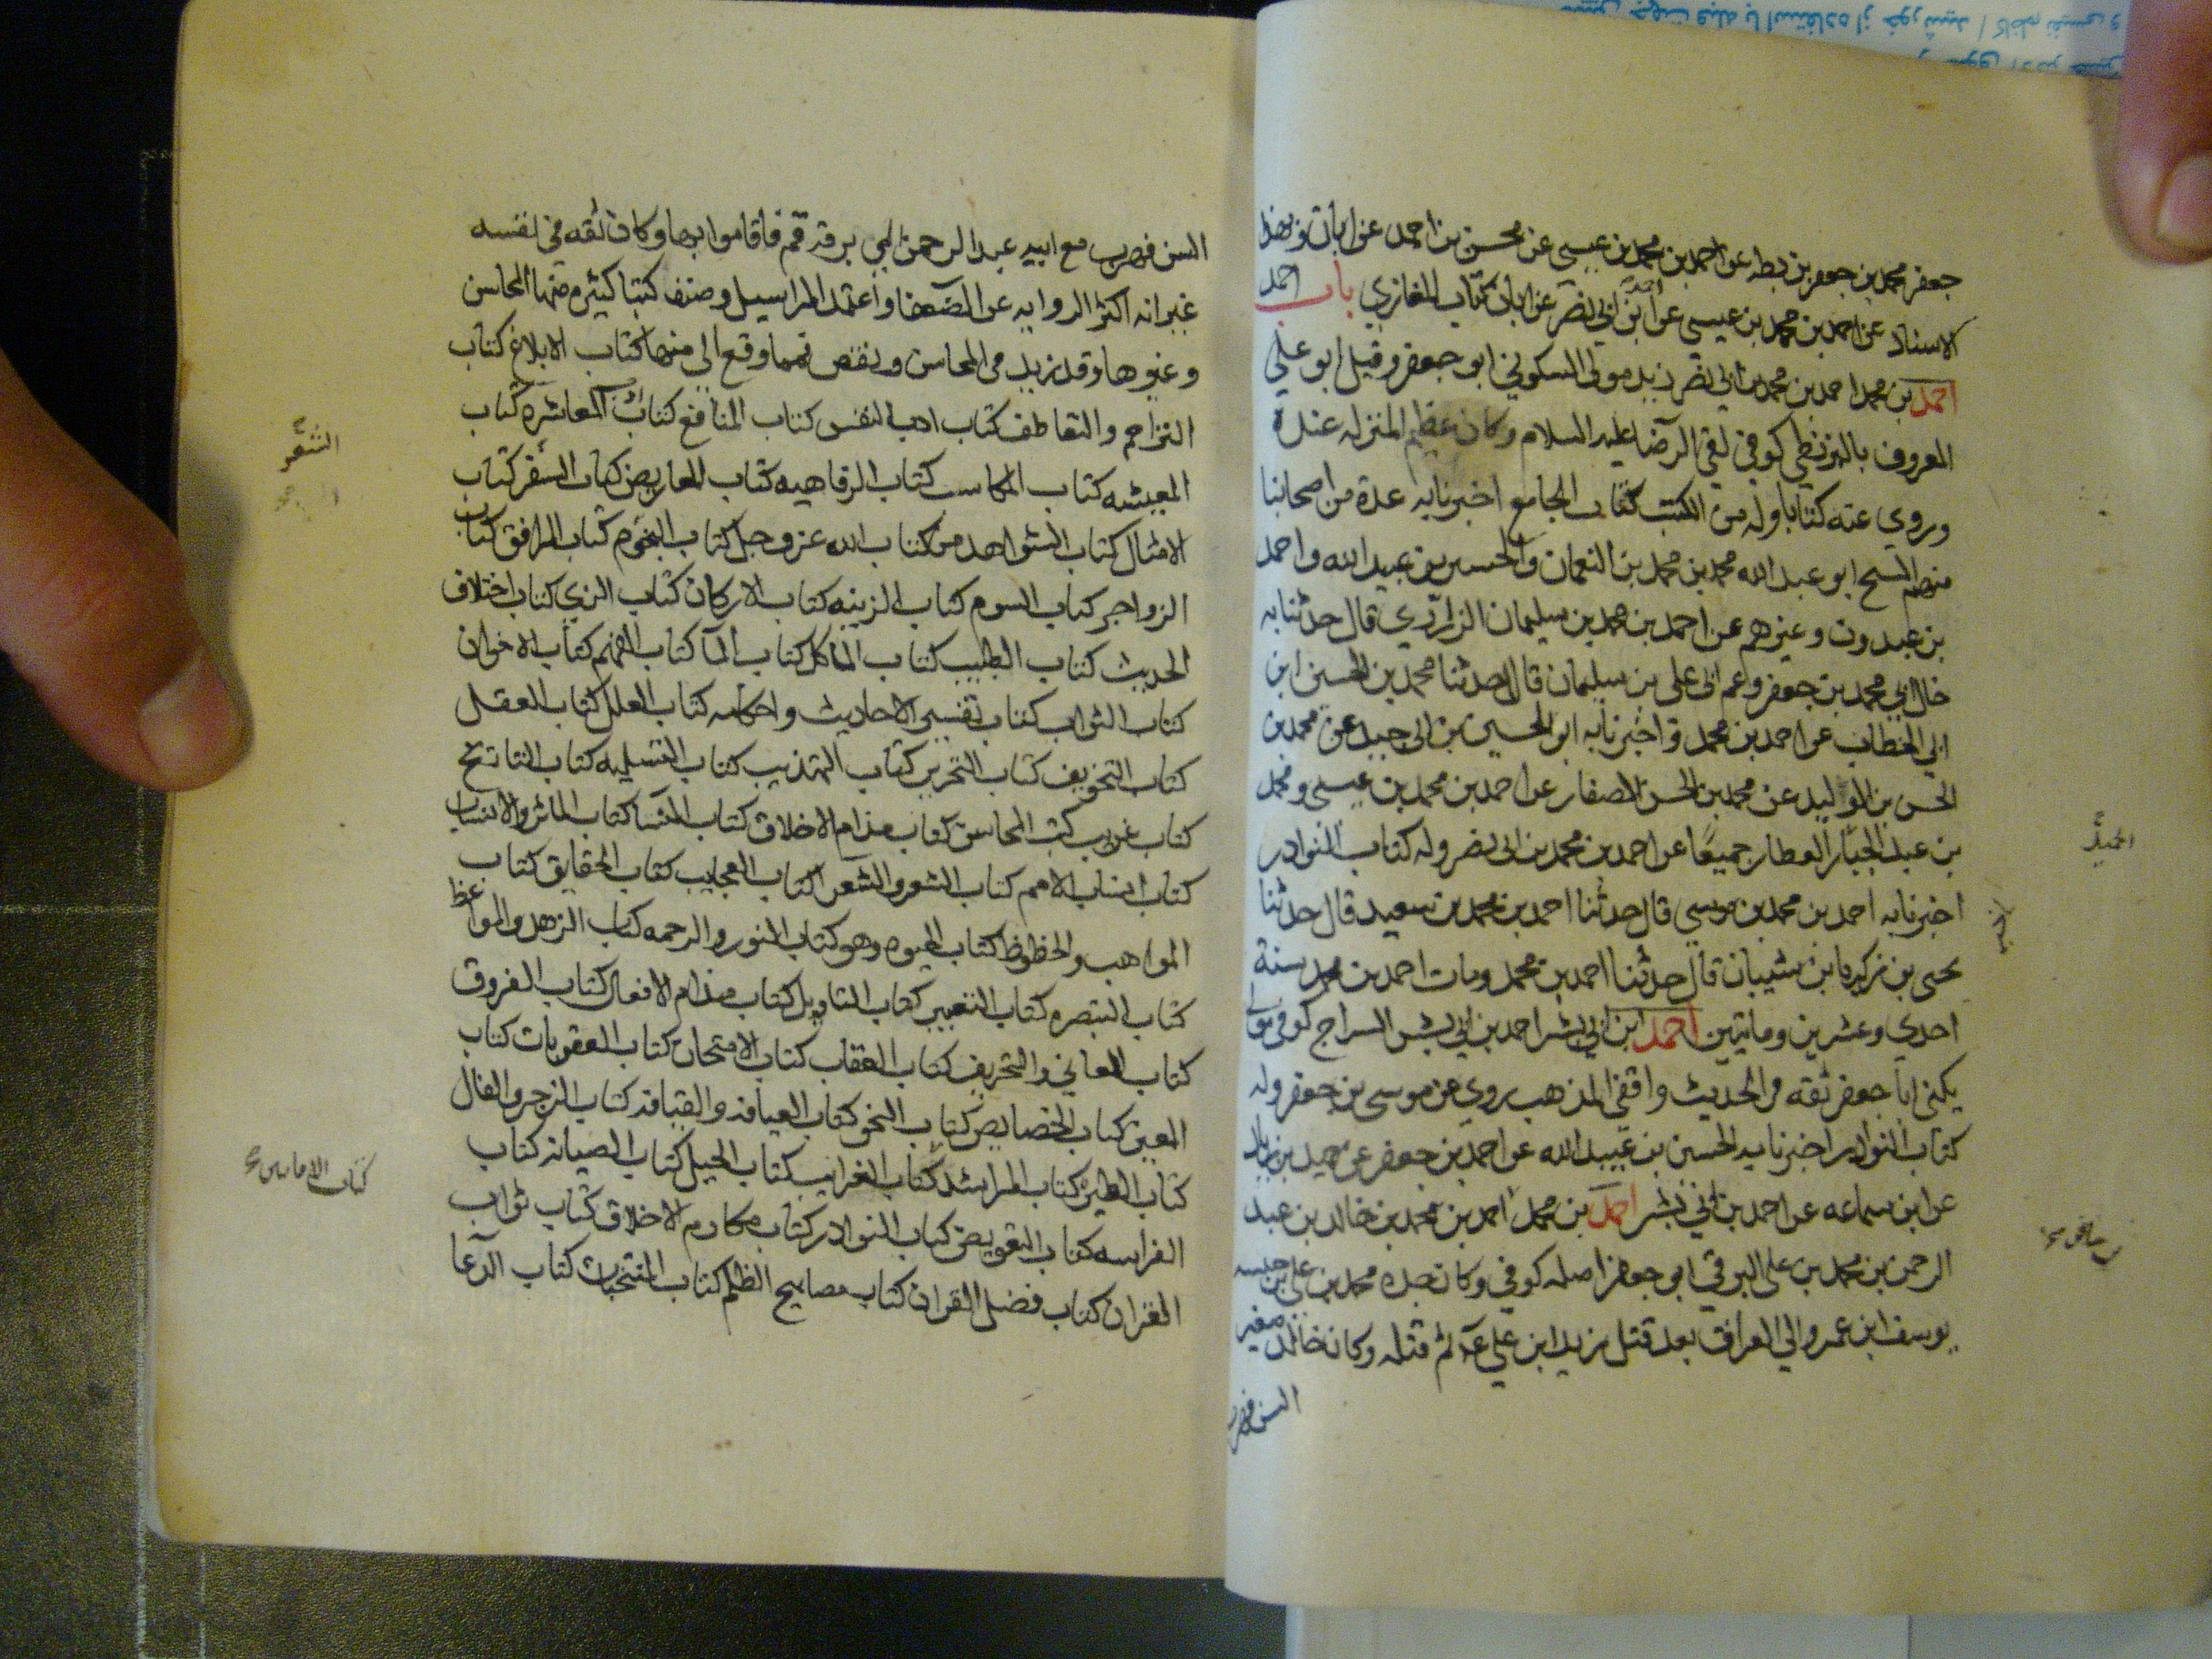 جعفر محمد بن جعفر بن بطه عن احمد بن محمد بن عيسى عن محسن بن احمد عن ابان و بهذا
الاسناد عن احمد بن محمد بن عيسى عن احمد ابن ابي نصر عن ابان كتاب المغازي باب احمد
احمد بن محمد احمد بن محمد بن ابي نصر زيد مولى السكوني ابو جعفر و قيل ابو علي
المعروف بالبزنطي كوفي لقي الرضا عليه السلام و كان عظيم المنزله عنده
وروي عنه كتابا وله من الكتب كتاب الجامع اخبرنا به عدة من اصحابنا
منهم الشيخ ابو عبد الله محمد بن محمد بن النعمان و الحسين بن عبيد الله و احمد
بن عبدون و غيرهم عن احمد بن محمد بن سليمان الزراري قال حدثنا به
خال ابي محمد بن جعفر و عم ابي علي بن سليمان قال حدثنا محمد بن الحسين ابن
ابي الخطاب عن احمد بن محمد و اخبرنا به ابو الحسين بن ابي جيد عن محمد بن
الحسن بن الوليد عن محمد بن الحسن الصفار عن احمد بن محمد بن عيسى و محمد
بن عبد الجبار العطار جميعا عن احمد بن محمد بن ابي نصر وله كتاب النوادر
اخبرنا به احمد بن محمد بن موسى قال حدثنا احمد بن محمد بن سعيد قال حدثنا
يحيى بن زكريا بن شيبان قال حدثنا احمد بن محمد ومات احمد بن محمد سنة
احدي وعشرين وماتين احمد ابن ابي بشر احمد بن ابي بشر السراج كوفي مولى
يكنى ابا جعفر ثقه في الحديث واقفي المذهب روي عن موسى بن جعفر وله
كتاب النوادر اخبرنا به الحسين بن عبيد الله عن احمد بن جعفر عن حميد بن زياد
عن ابن سماعه عن احمد بن ابي بشر احمد بن محمد احمد بن محمد بن خالد بن عبد
الرحمن بن محمد بن علي البرقي ابو جعفر اصله كوفي وكان جده محمد بن علي حبسه
يوسف ابن عمر والي العراق بعد قتل زيد ابن علي ع ثم قتله وكان خالد صغير
السن فهرب
السن فهرب مع ابيه عبد الرحمن الى برقه قم فاقاموا بها وكان ثقه في نفسه
غير انه اكثر الروايه عن الضعفا واعتمد المراسيل وصنف كتبا كثيره منها المحاسن
وغيرها وقد زيد في المحاسن ونقص فمما وقع الي منها كتاب الابلاغ كتاب
التراحم والتعاطف كتاب ادب النفس كتاب المنافع كتاب ادب المعاشره كتاب
المعيشه كتاب المكاسب كتاب الرفاهيه كتاب المعاريض كتاب السفر كتاب
الامثال كتاب الشواهد من كتاب الله عز وجل كتاب النجوم كتاب المرافق كتاب
الزواجر كتاب السوم كتاب الزينه كتاب الاركان كتاب الزي كتاب اختلاف
الحديث كتاب الطيب كتاب الماكل كتاب الما كتاب الفهم كتاب الاخوان
كتاب الثواب كتاب تفسير الاحاديث واحكامه كتاب العلل كتاب العقل
كتاب التخويف كتاب التحرير كتاب التهذيب كتاب التسليه كتاب التاريخ
كتاب غريب كتب المحاسن كتاب مذام الاخلاق كتاب النسا كتاب الماثر والانساب
كتاب انساب الامم كتاب الشعر والشعرا كتاب العجايب كتاب الحقايق كتاب
المواهب والحظوظ كتاب الحيوه وهو كتاب النور والرحمه كتاب الزهد والمواعظ
كتاب التبصره كتاب التعبير كتاب التاويل كتاب مذام الافعال كتاب الفروق
كتاب المعاني والتحريف كتاب العقاب كتاب الامتحان كتاب العقوبات كتاب
العين كتاب الخصايص كتاب النحو كتاب العيافه والقيافه كتاب الزجر والفال
كتاب الطيره كتاب المراشد كتاب الغرايب كتاب الحيل كتاب الصيانه كتاب
الفراسه كتاب التعويض كتاب النوادر كتاب مكارم الاخلاق كتاب ثواب
القران كتاب فضل القران كتاب مصابيح الظلم كتاب المنتخبات كتاب الدعا